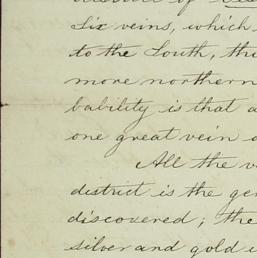 Six veins, which
to the South, thi
more northern
bability is that a
one great vein o
All the v
district is the gen
discovered; the
silver and gold i